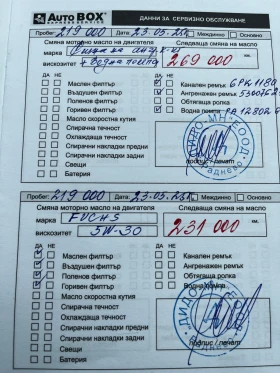 AUTO BOX ДАННИ ЗА СЕРВИЗНО ОБСЛУЖВАНЕ
Пробег: 219 000 Дата 23.05.25г. Междинно Основно
Смяна моторно масло на двигателя Следваща смяна на
марка
вискозитет + Водна помпа 269 000 км.
ДА НЕ ДА НЕ
Маслен филтър Канален ремък 6PK1180
Въздушен филтър Ангренажен ремък
Поленов филтър Обтягаща ролка
Горивен филтър Водна помпа
Масло скоростна кутия
Спирачна течност
Охлаждаща течност
Спирачни накладки предни
Спирачни накладки задни
Свещи
Батерия
подпис / печат
Пробег: 219 000 Дата 23.05.25г. Междинно Основно
Смяна моторно масло на двигателя Следваща смяна на
марка FUCHS
вискозитет 5W-30 231 000 км.
ДА НЕ ДА НЕ
Маслен филтър Канален ремък
Въздушен филтър Ангренажен ремък
Поленов филтър Обтягаща ролка
Горивен филтър Водна помпа
Масло скоростна кутия
Спирачна течност
Охлаждаща течност
Спирачни накладки предни
Спирачни накладки задни
Свещи
Батерия
подпис / печат